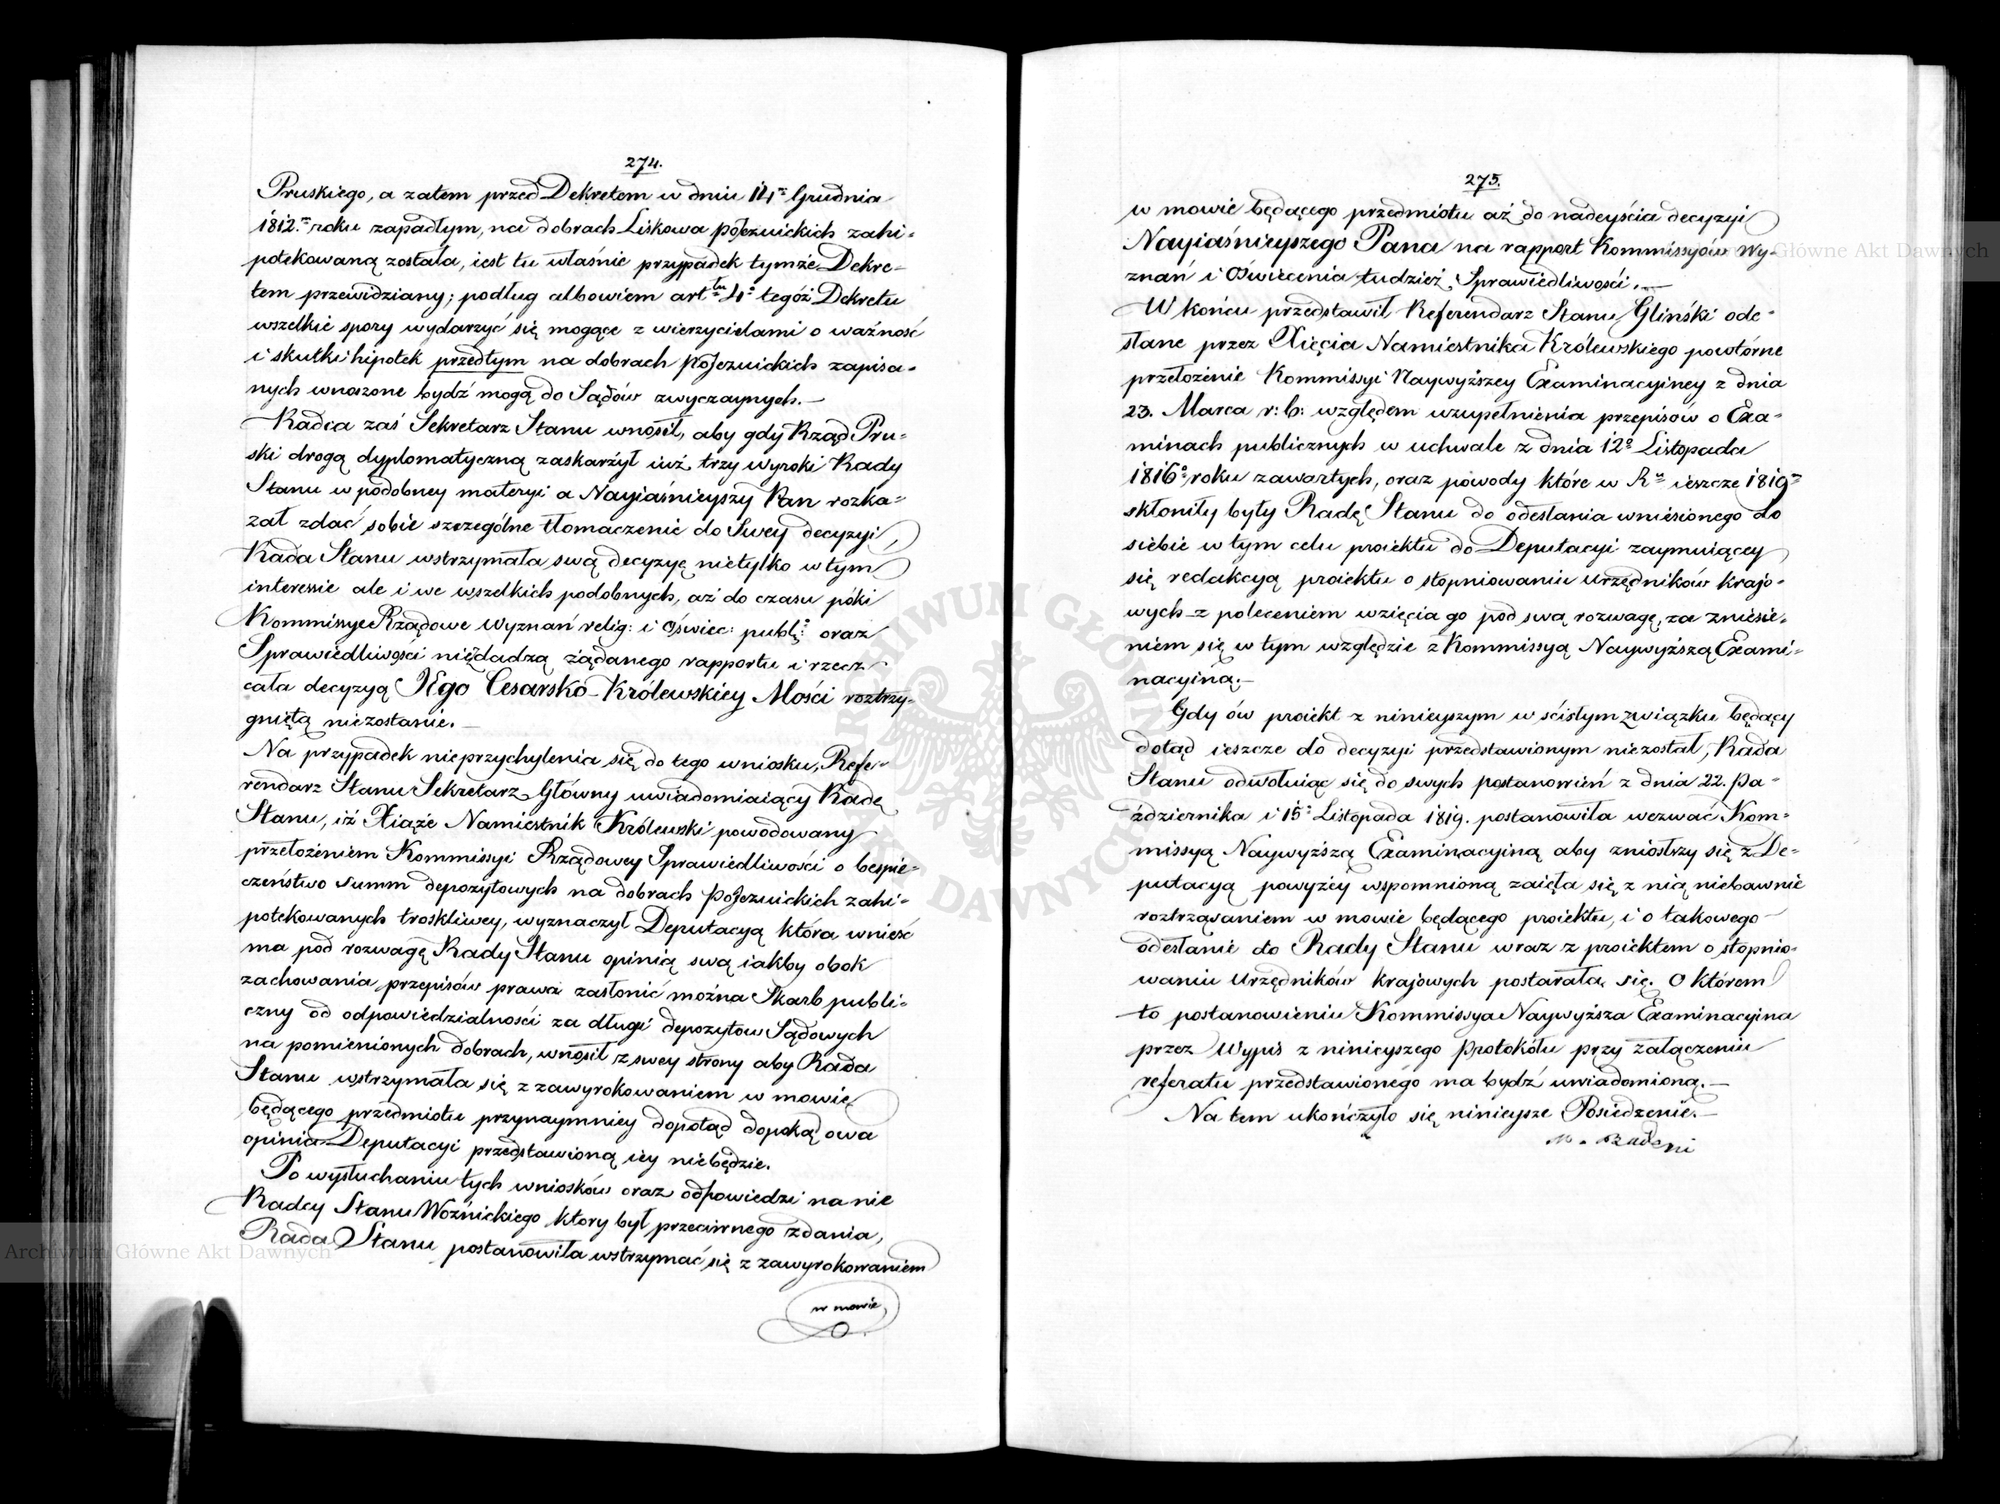 274.
Pruskiego, a zatem przed Dekretem w dniu 14m Grudnia
1812.m roku zapadłym, na dobrach Liskowa pojezuickich zahi-
potekowaną została, iest tu właśnie przypadek tymże Dekre-
tem przewidziany; podług albowiem arttu 4o tegóż Dekretu
wszelkie spory wydarzyć się mogące z wierzycielami o ważność
i skutki hipotek przedtym na dobrach pojezuickich zapisa-
nych wnoszone bydź mogą do Sądów zwyczaynych.—
Radca zaś Sekretarz Stanu wnosił, aby gdy Rząd Pru-
ski drogą dyplomatyczną zaskarżył iuż trzy wyroki Rady
Stanu w podobney materyi a Nayiaśnieyszy Pan rozka-
zał zdać sobie szczególne tłomaczenie do Swey decyzyi,
Rada Stanu wstrzymała swą decyzyę nietylko w tym
interesie ale i we wszelkich podobnych, aż do czasu póki
Kommissye Rządowe Wyznań relig: i Oświec: publ: oraz
Sprawiedliwości niedadzą żądanego rapportu i rzecz
cała decyzyą JEgo Cesarsko-Królewskiey Mości roztrzy-
gniętą niezostanie.—
Na przypadek nieprzychylenia się do tego wniosku, Refe-
rendarz Stanu Sekretarz Główny uwiadomiaiący Radę
Stanu, iż Xiąże Namiestnik Królewski powodowany
przełożeniem Kommissyi Rządowey Sprawiedliwości o bespie-
czeństwo summ depozytowych na dobrach pojezuickich zahi-
potekowanych troskliwey, wyznaczył Deputacyą która wnieść
ma pod rozwagę Rady Stanu opinią swą iakby obok
zachowania przepisów prawa zasłonić można Skarb publi-
czny od odpowiedzialności za długi depozytow Sądowych
na pomienionych dobrach, wnosił z swey strony aby Rada
Stanu wstrzymała się z zawyrokowaniem w mowie
będącego przedmiotu przynaymniey dopotąd dopoką owa
opinia Deputacyi przedstawioną iey niebędzie.
Po wysłuchaniu tych wniosków oraz odpowiedzi na nie
Radcy Stanu Woźnickiego ktory był przeciwnego zdania,
Rada Stanu postanowiła wstrzymać się z zawyrokowaniem
w mowie
275.
w mowie będącego przedmiotu aż do nadeyścia decyzyi
Nayiaśnieyszego Pana na rapport Kommissyów Wy-
znań i Oświecenia tudzież Sprawiedliwości.—
W końcu przedstawił Referendarz Stanu Gliński ode-
słane przez Xięcia Namiestnika Królewskiego powtórne
przełożenie Kommissyi Naywyższey Examinacyiney z dnia
23. Marca r: b: względem uzupełnienia przepisow o Exa-
minach publicznych w uchwale z dnia 12o Listopada
1816o roku zawartych, oraz powody które w Ru ieszcze 1819m
skłoniły były Radę Stanu do odesłania wniesionego do
siebie w tym celu proiektu do Deputacyi zaymuiącey
się redakcyą proiektu o stopniowaniu urzędników krajo-
wych z poleceniem wzięcia go pod swą rozwagę, za zniesie-
niem się w tym względzie z Kommissyą Naywyższą Exami-
nacyiną.—
Gdy ów proiekt z ninieyszym w ścisłym związku będący
dotąd ieszcze do decyzyi przedstawionym niezostał, Rada
Stanu odwołuiąc się do swych postanowień z dnia 22. Pa-
ździernika i 15o Listopada 1819. postanowiła wezwać Kom-
missyą Naywyższą Examinacyiną aby zniósłszy się z De-
putacyą powyżéy wspomnioną zaięła się z nią niebawnie
roztrząsaniem w mowie będącego proiektu, i o takowego
odesłanie do Rady Stanu wraz z proiektem o stopnio-
waniu Urzędników krajowych postarała się. O którem
to postanowieniu Kommissya Naywyższa Examinacyina
przez Wypis z ninieyszego Protokółu przy załączeniu
referatu przedstawionégo ma bydź uwiadomioną.—
Na tem ukończyło się ninieysze Posiedzenie.—
M. Badeni
Archiwum Główne Akt Dawnych